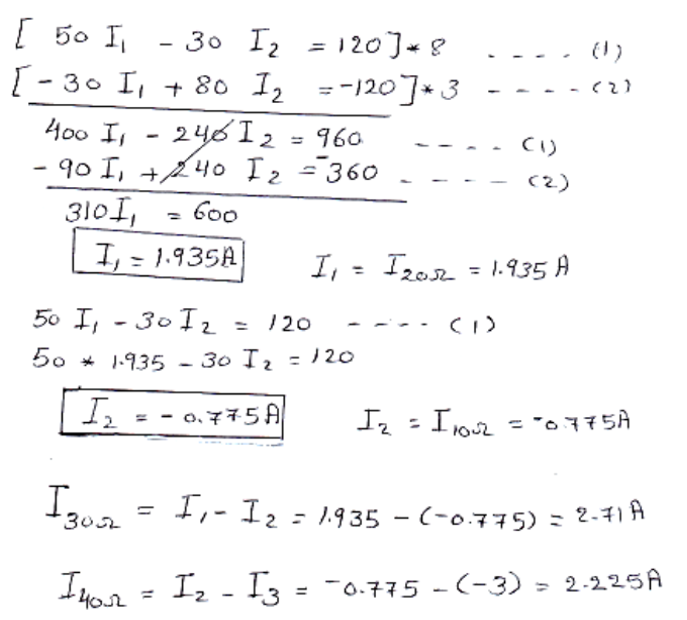 [ 50 I₁ - 30 I₂ = 120 ] * 8 - - - - (1)
[ - 30 I₁ + 80 I₂ = -120 ] * 3 - - - - (2)
400 I₁ - 240 I₂ = 960 - - - - (1)
- 90 I₁ + 240 I₂ = -360 - - - - (2)
310 I₁ = 600
I₁ = 1.935A I₁ = I₂₀Ω = 1.935 A
50 I₁ - 30 I₂ = 120 - - - - (1)
50 * 1.935 - 30 I₂ = 120
I₂ = - 0.775A I₂ = I₁₀Ω = -0.775A
I₃₀Ω = I₁ - I₂ = 1.935 - (-0.775) = 2.71 A
I₄₀Ω = I₂ - I₃ = -0.775 - (-3) = 2.225A